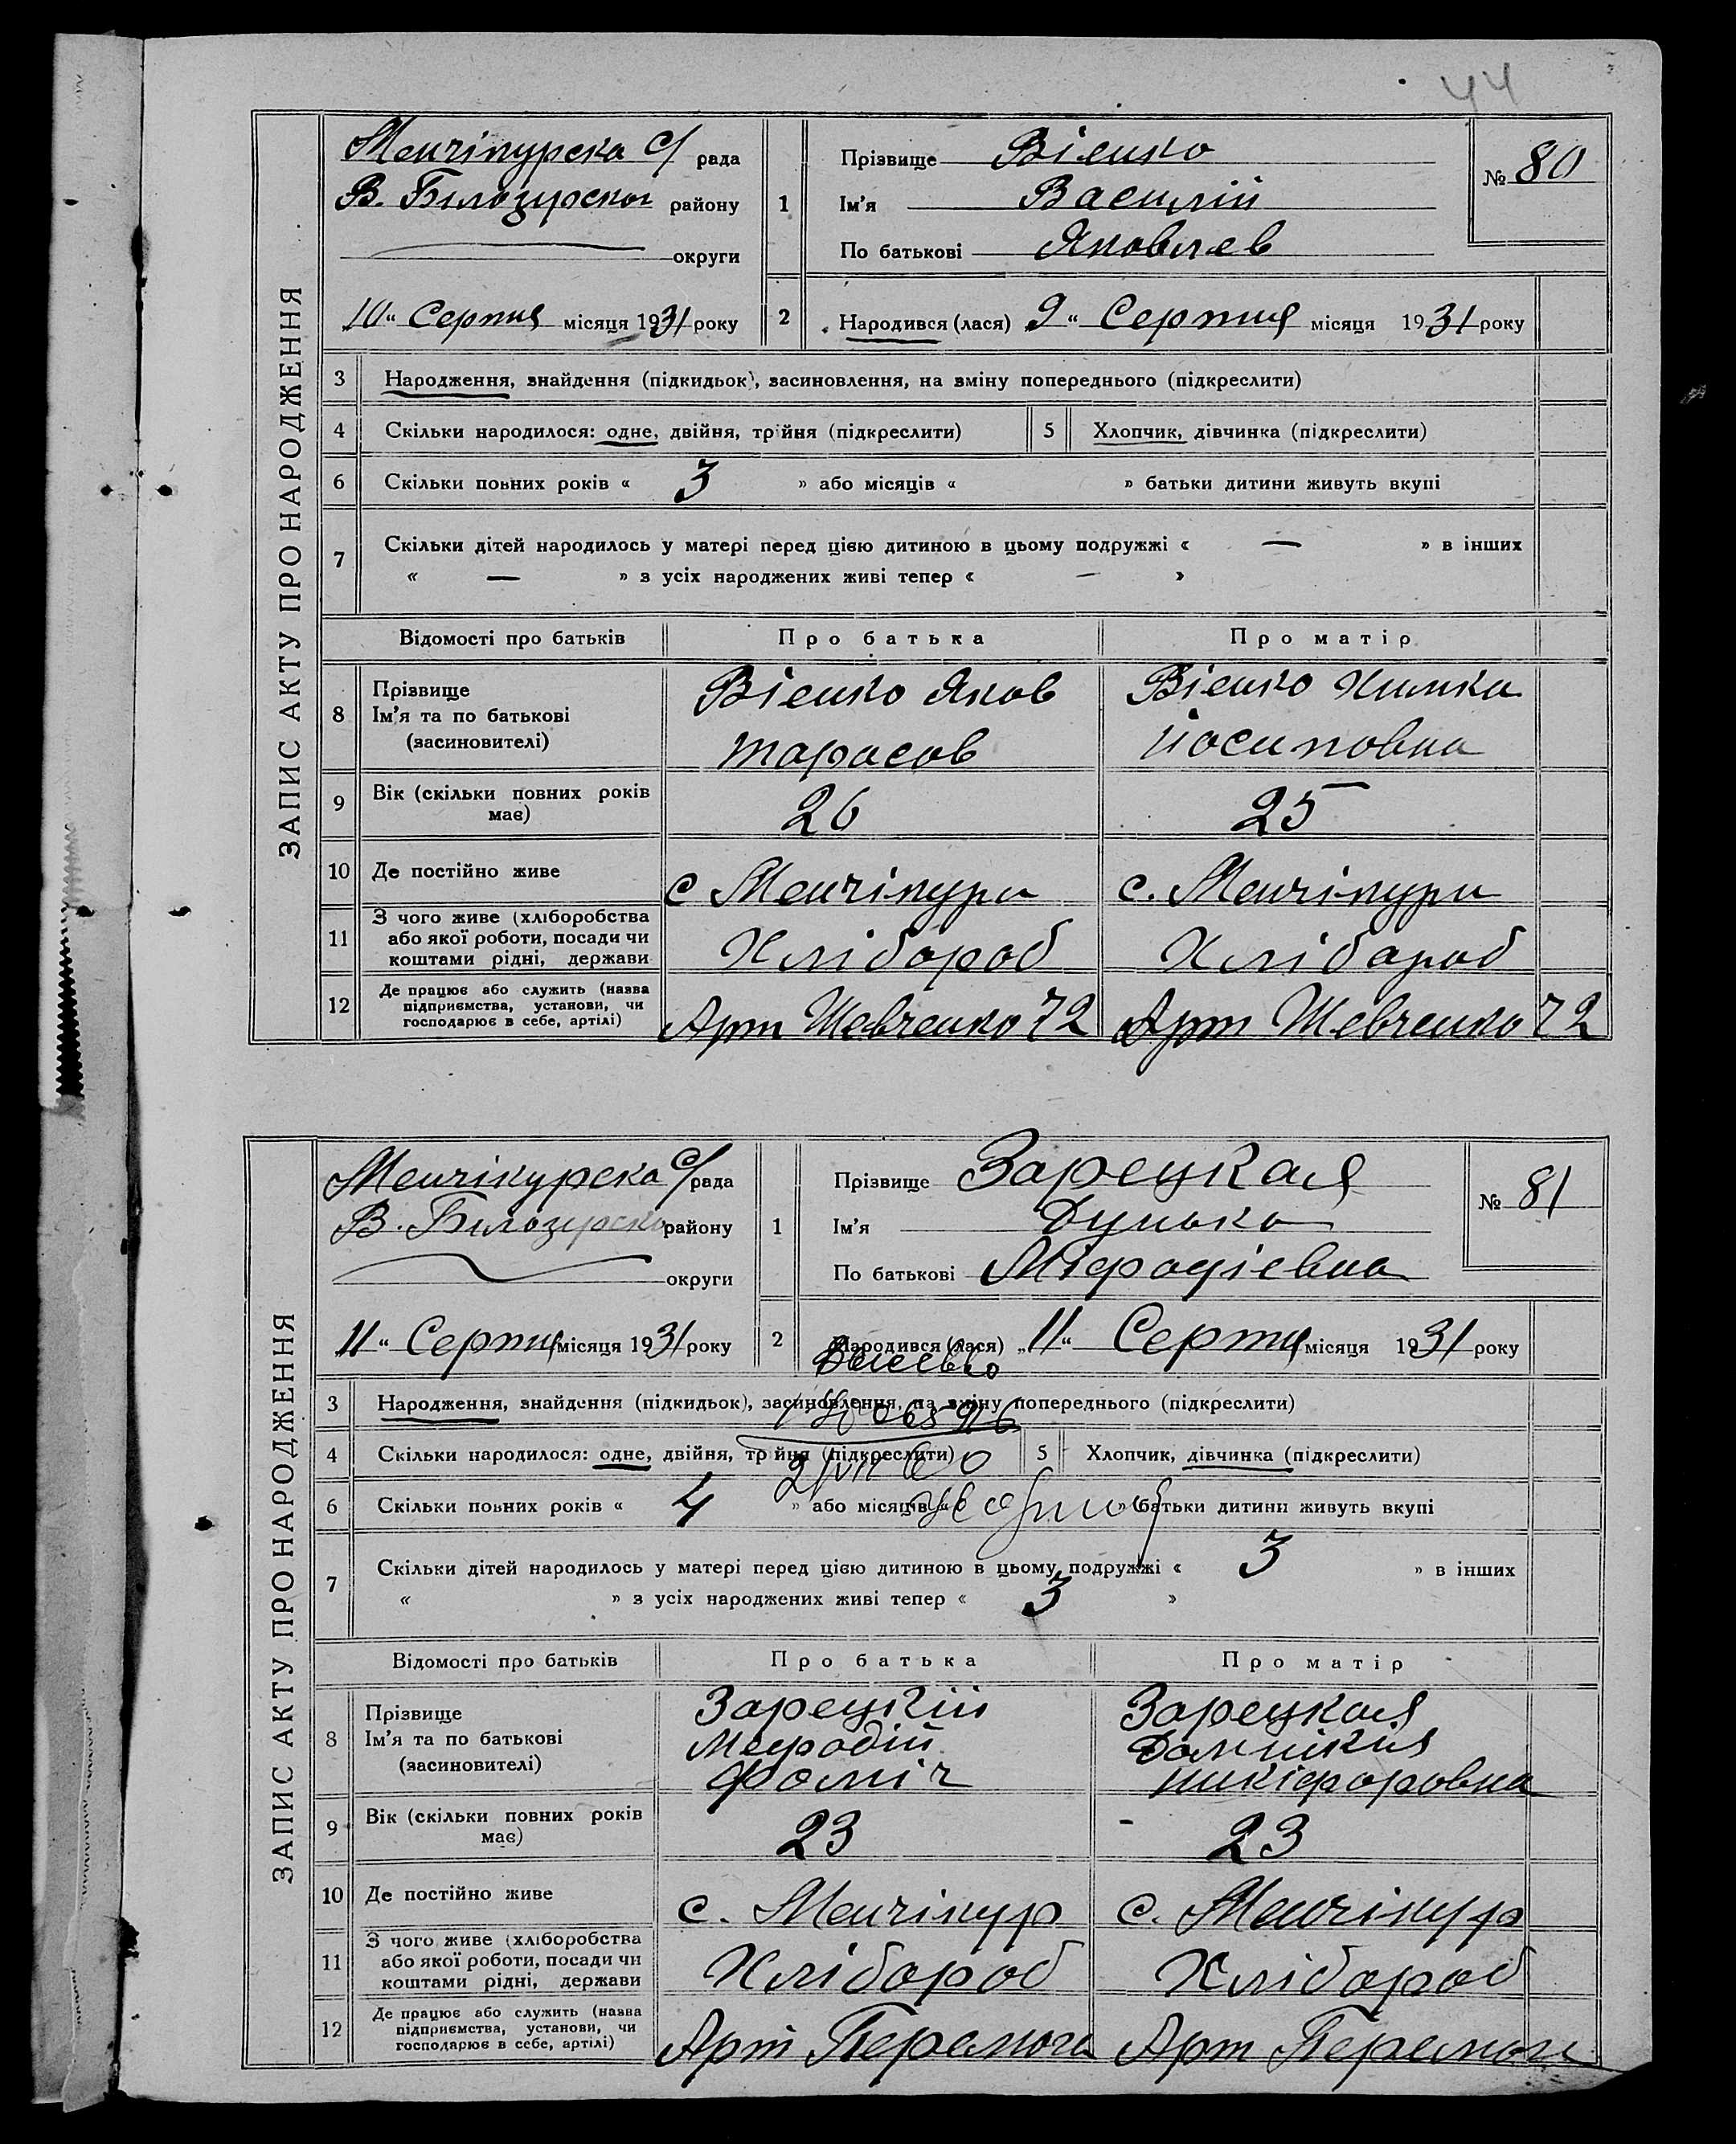 44
ЗАПИС АКТУ ПРО НАРОДЖЕННЯ
Менчікурска С/ рада
В. Білозурског району
округи
„10“ Серпня місяця 1931 року
1
Прізвище Вієнко
Ім'я Василій
По батькові Яковлев
№ 80
2 Народився (лася) „9“ Серпня місяця 1931 року
3 Народження, знайдення (підкидьок), засиновлення, на зміну попереднього (підкреслити)
4 Скільки народилося: одне, двійня, трійня (підкреслити) 5 Хлопчик, дівчинка (підкреслити)
6 Скільки повних років « 3 » або місяців « » батьки дитини живуть вкупі
7 Скільки дітей народилось у матері перед цією дитиною в цьому подружжі « — » в інших
« — » з усіх народжених живі тепер « — »
Відомості про батьків Про батька Про матір
8 Прізвище Ім'я та по батькові (засиновителі)
Вієнко Яков Тарасов
Вієнко Химка Йосиповна
9 Вік (скільки повних років має) 26 25
10 Де постійно живе с Менчікури с. Менчікури
11 З чого живе (хліборобства або якої роботи, посади чи коштами рідні, держави Хлібороб Хлібароб
12 Де працює або служить (назва підприємства, установи, чи господарює в себе, артілі) Арт Шевченко 72 Арт Шевченко 72
ЗАПИС АКТУ ПРО НАРОДЖЕННЯ
Менчікурска С/ рада
В. Білозурско району
округи
„11“ Серпня місяця 1931 року
1
Прізвище Зарецкая
Ім'я Дунька
По батькові Міфодіевна
№ 81
2 Народився (лася) „11“ Серпня місяця 1931 року
3 Народження, знайдення (підкидьок), засиновлення, на зміну попереднього (підкреслити)
4 Скільки народилося: одне, двійня, трійня (підкреслити) 5 Хлопчик, дівчинка (підкреслити)
6 Скільки повних років « 4 » або місяців « » батьки дитини живуть вкупі
7 Скільки дітей народилось у матері перед цією дитиною в цьому подружжі « 3 » в інших
« » з усіх народжених живі тепер « 3 »
Відомості про батьків Про батька Про матір
8 Прізвище Ім'я та по батькові (засиновителі)
Зарецкій Мефодій Фоміч
Зарецкая Домнікія Никіфоровна
9 Вік (скільки повних років має) 23 23
10 Де постійно живе с. Менчікур с. Менчікур
11 З чого живе (хліборобства або якої роботи, посади чи коштами рідні, держави Хлібороб Хлібороб
12 Де працює або служить (назва підприємства, установи, чи господарює в себе, артілі) Арт Перемога Арт Перемога